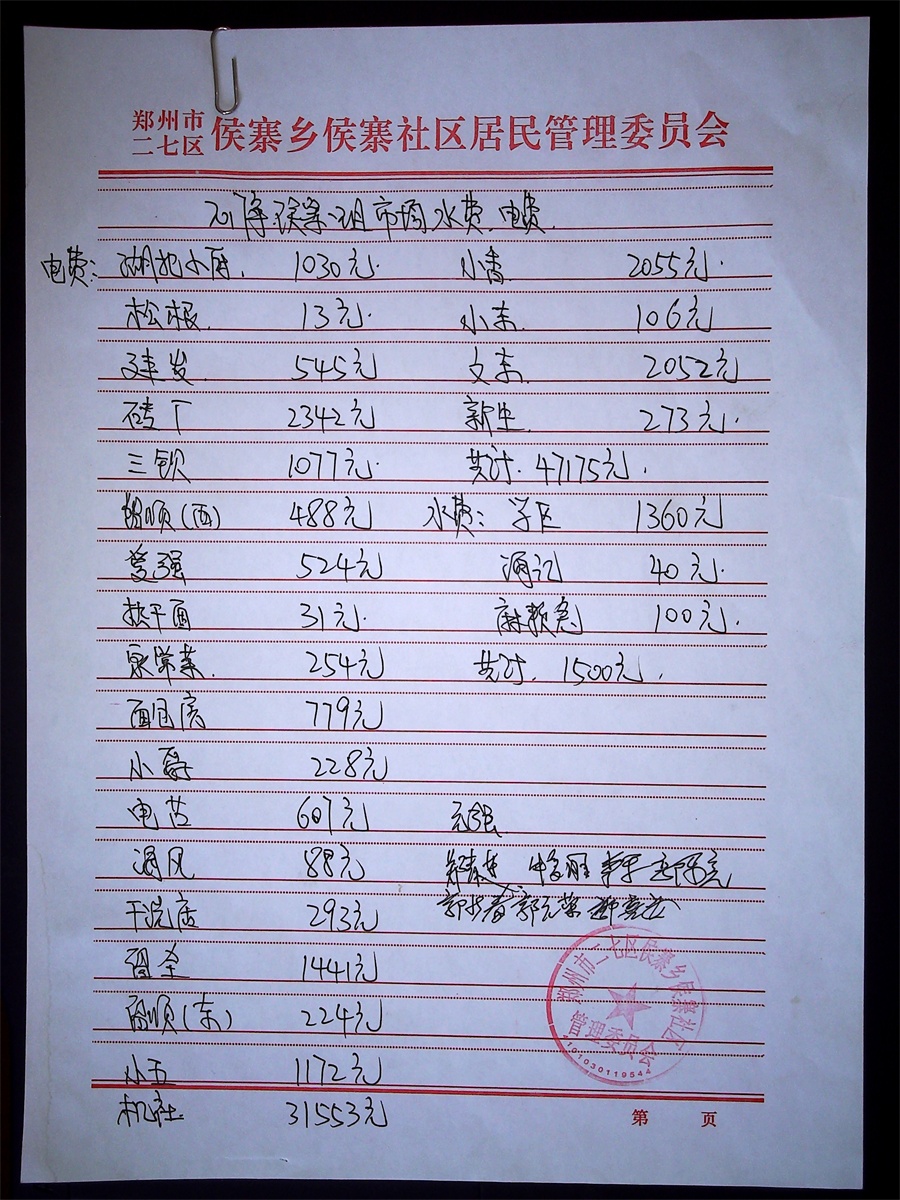 郑州市
二七区 侯寨乡侯寨社区居民管理委员会
侯寨组市场水费.电费.
电费: 湖北小厨. 1030元. 小青 2055元.
松根. 13元. 小东. 106元
建发. 545元 文东. 2052元
砖厂 2342元 新生. 273元.
三锁 1077元. 共计. 47175元.
顺(西) 488元 水费: 学区 1360元
爱强 524元 40元.
热干面 31元. 麻辣烫 100元.
家常菜. 254元 共计. 1500元.
面包房 779元
小 228元
电芯 607元
通风 88元
干洗店 293元
1441元
顺(东) 224元
小五 1172元
机社. 31553元
郑州市二七区侯寨乡侯寨社区
管理委员会
4101030119544
第 页